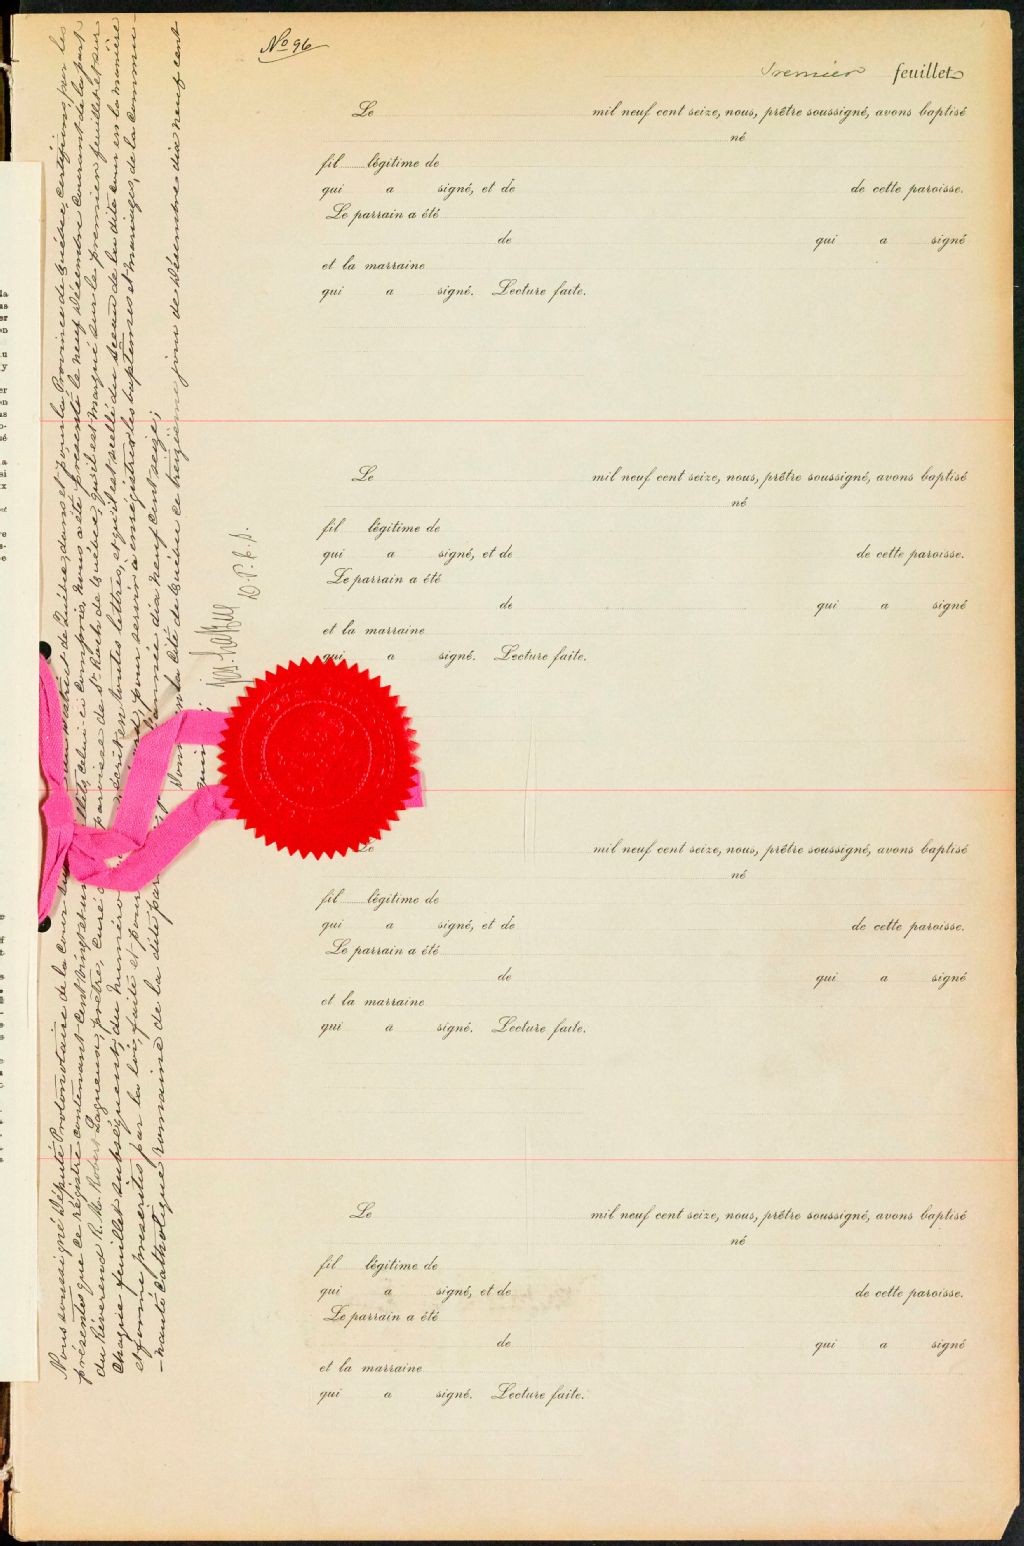 No 96
Premier feuillet
Le mil neuf cent seize, nous, prêtre soussigné, avons baptisé
né
fil légitime de
qui a signé, et de de cette paroisse.
Le parrain a été
de qui a signé
et la marraine
qui a signé. Lecture faite.
Le mil neuf cent seize, nous, prêtre soussigné, avons baptisé
né
fil légitime de
qui a signé, et de de cette paroisse.
Le parrain a été
de qui a signé
et la marraine
qui a signé. Lecture faite.
Le mil neuf cent seize, nous, prêtre soussigné, avons baptisé
né
fil légitime de
qui a signé, et de de cette paroisse.
Le parrain a été
de qui a signé
et la marraine
qui a signé. Lecture faite.
Le mil neuf cent seize, nous, prêtre soussigné, avons baptisé
né
fil légitime de
qui a signé, et de de cette paroisse.
Le parrain a été
de qui a signé
et la marraine
qui a signé. Lecture faite.
Nous soussigné Député Protonotaire de la Cour district de Québec, dans et pour la Province de Québec, certifions par les
présentes que ce régistre contenant Cent vingt et un feuillets, celui-ci compris, nous a été présenté le neuf Décembre courant de la part
du Révérend R. M. Robert Lagueux, prêtre, Curé paroisse de St Roch de Québec, qu'il est marqué sur le premier feuillet et sur
chaque feuillet subséquent, du numéro écrit en toutes lettres, et qu'il est scellé du sceau de la dite cour en la manière
et forme prescrites par la loi, faite et pour pour servir à enregistrer les baptêmes et mariages, de la commu-
-nauté Catholique romaine de la dite paroisse l'année dix neuf cent seize;
Donné en la Cité de Québec ce treizième jour de Décembre dix neuf cent
quinze;
D. P. C. S.